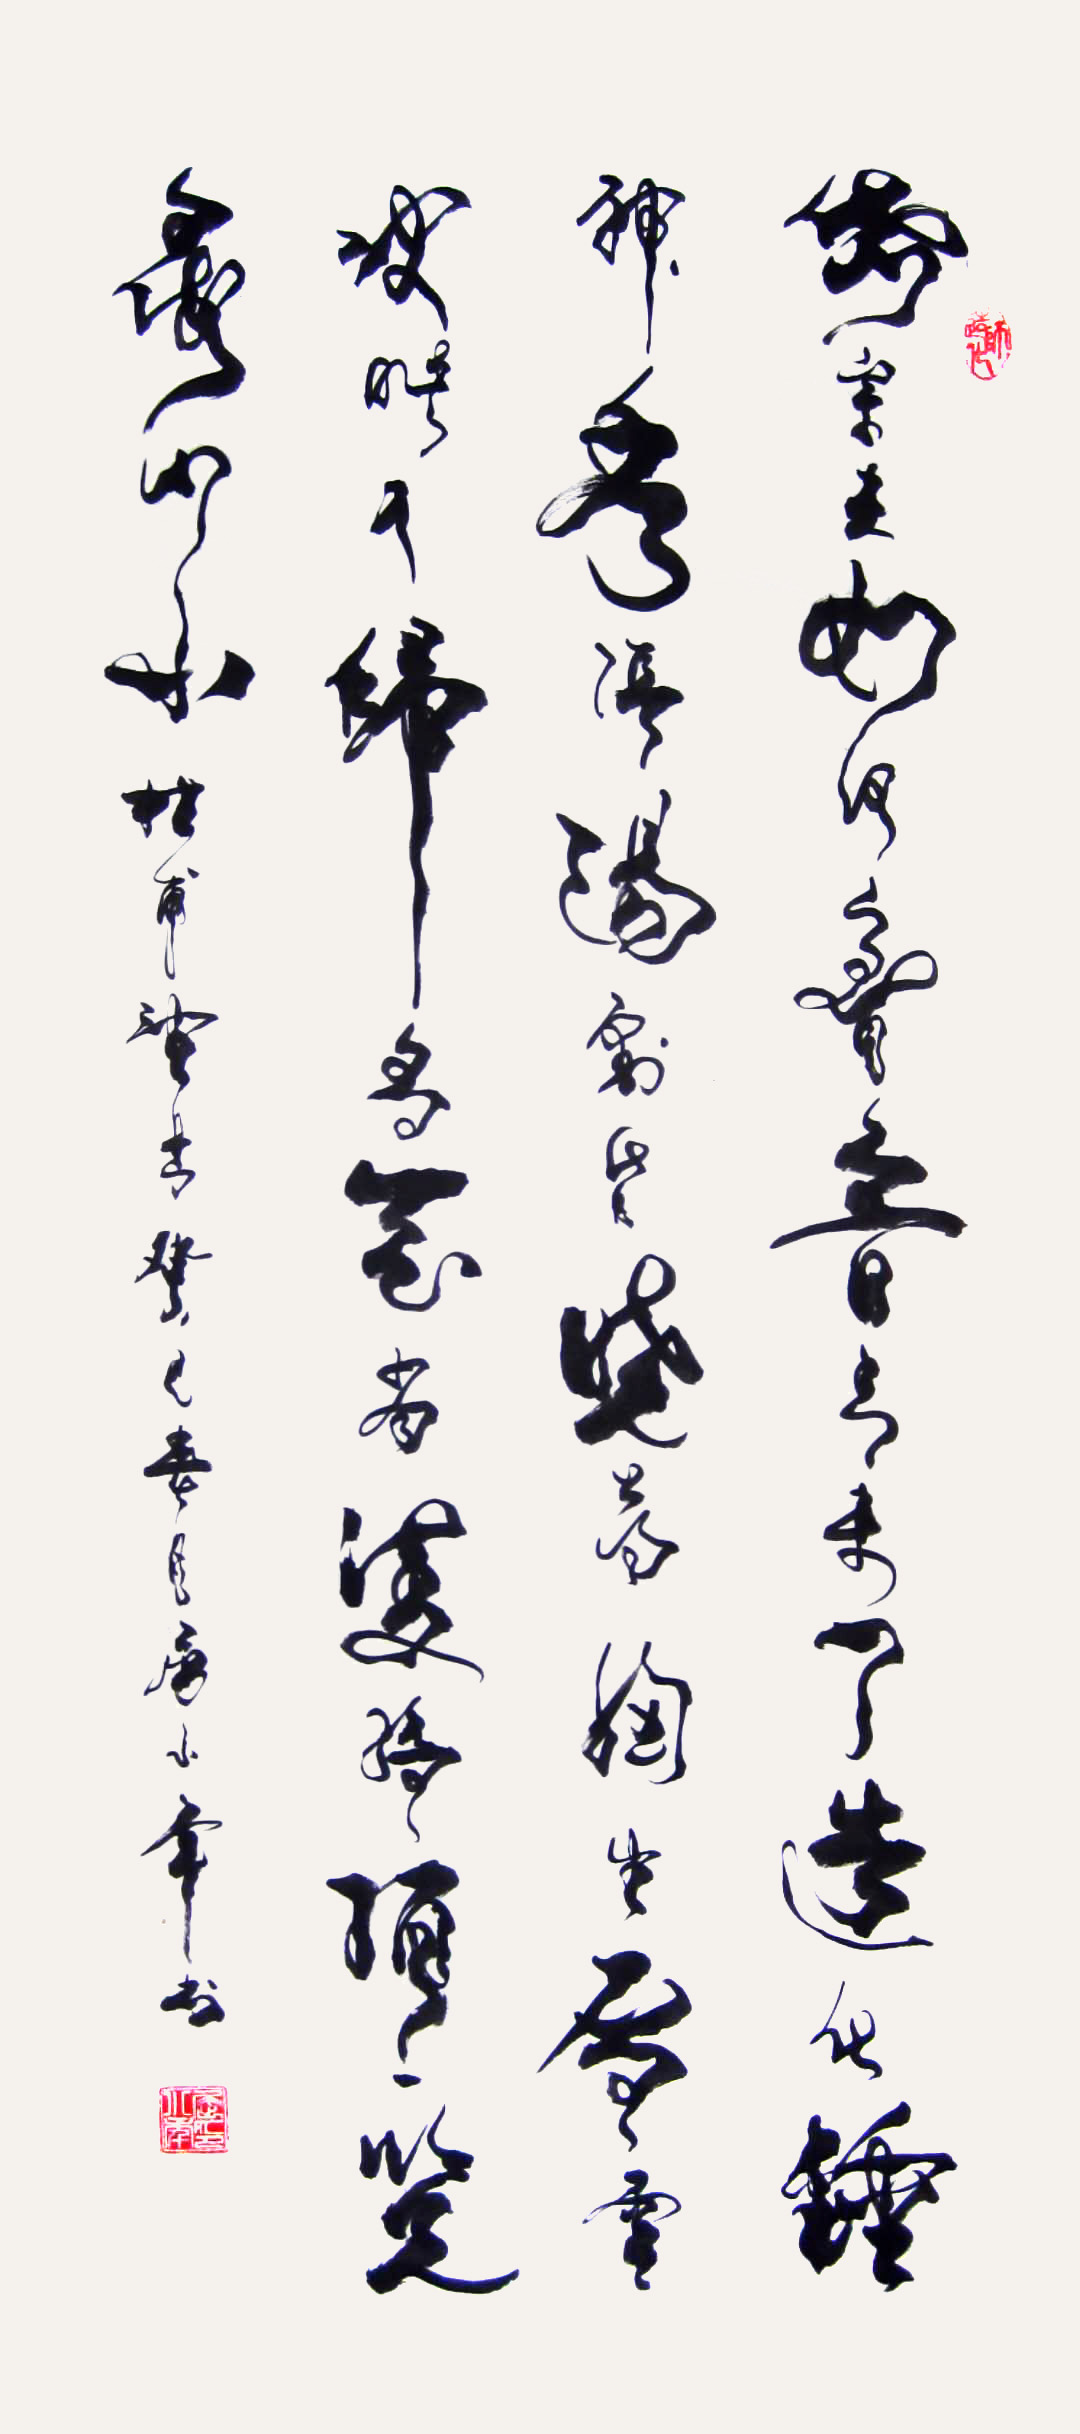 岱宗夫如何齊魯青未了造化鍾
神秀陰陽割昏曉蕩胸生層雲
決眥入歸鳥會當凌絕頂一覽
眾山小 杜甫望岳 癸巳春月 小軍书